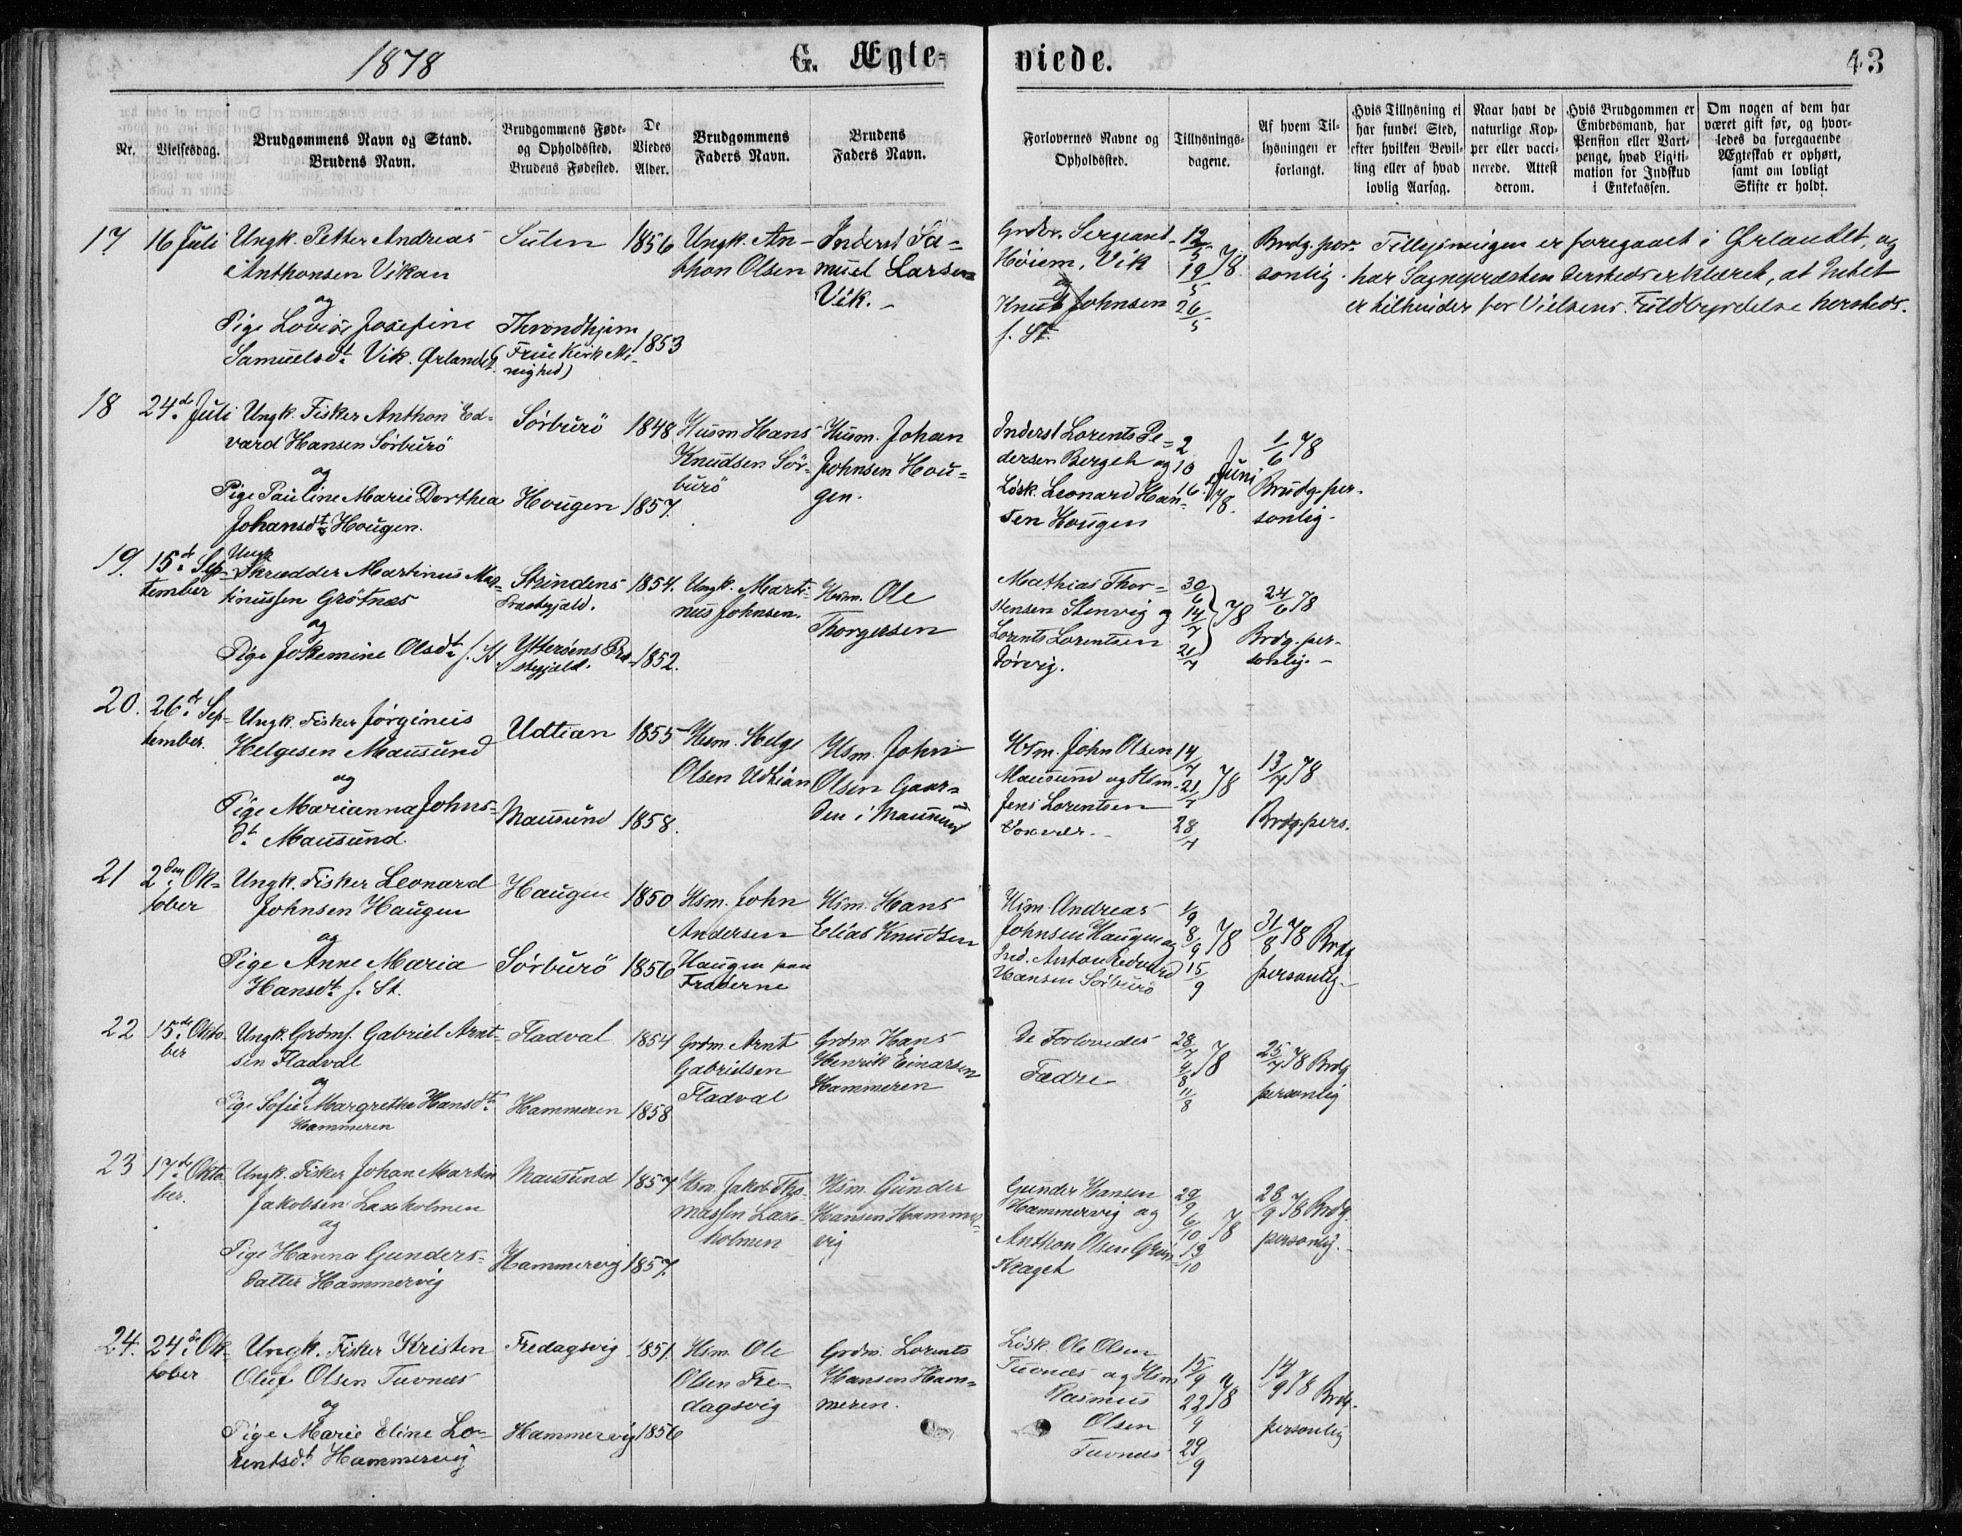 1878
G. Ægte-
viede.
43
Nr.
Vielsesdag.
Brudgommens Navn og Stand.
Brudens Navn.
Brudgommens Føde-
og Opholdssted.
Brudens Fødested.
De
Viedes
Alder.
Brudgommens
Faders Navn.
Brudens
Faders Navn.
Forlovernes Navne og
Opholdssted.
Tillysnings-
dagene.
Af hvem Til-
lysningen er
forlangt.
Hvis Tillysning ei
har fundet Sted,
efter hvilken Bevil-
ling eller af hvad
lovlig Aarsag.
Naar havt de
naturlige Kop-
per eller vacci-
nerede. Attest
derom.
Hvis Brudgommen er
Embedsmand, har
Pension eller Vart-
penge, hvad Ligiti-
mation for Indskud
i Enkekassen.
Om nogen af dem har
været gift før, og hvor-
ledes da foregaaende
Ægteskab er ophørt,
samt om lovligt
Skifte er holdt.
17 16 Juli Ungk. Petter Andreas
Anthonsen Vikan
og
Pige Lovise Josefine
Samuelsdt. Vik. Ørlandet
Sulen 1856
Throndhjem
(Frue Kirk Me-
nighed) 1853
Ungk. An-
thon Olsen
Inderst Sa-
muel Larsen
Vik.
Grdbr. Sergeant
Høiem, Vik
og
Knut Johnsen
s. St.
12/5 19/5 78. 26/5
Brdg. per-
sonlig.
Tillysningen er foregaaet i Ørlandet, og
har Sognepræsten dersteds erklæret, at Intet
er til hinder for Vielsens Fuldbyrdelse hersteds.
18 24de Juli Ungk. Fisker Anthon Ed-
vard Hansen Sørburö
og
Pige Pauline Marie Dorthea
Johansdt. Hougen.
Sørburö 1848
Hougen 1857.
Husm Hans
Knudsen Sör-
burö
Husm. Johan
Johnsen Hou-
gen.
Inderst Lorents Pe-
dersen Berget og
Løsk. Leonard Han-
sen Hougen
2 10 16 Juni 78.
1/6 78
Brudg. per-
sonlig.
19. 15de Sep-
tember
Ungk
Skrædder Martinus Mar-
tinussen Grötnæs
og
Pige Jokemine Olsdt. s. St.
Strindens
Præstegjæld. 1854.
Ytterøens Præ-
stegjæld. 1852.
Ungk. Marti-
nus Johnsen.
Husm. Ole
Thorgersen
Mathias Thor-
stensen Stenvig og
Lorents Lorentsen
Sörvig.
30/6 14/7 21/7 78
24/6 78
Brdg. per-
sonlig.
20. 26de Sep-
tember.
Ungk. Fisker Jørgineus
Helgesen Mausund
og
Pige Marianna Johns-
dt. Mausund.
Udtian 1855
Mausund 1858.
Husm. Helge
Olsen Udtian
Hsm. John
Olsen Gaar-
den i Mausund
Hsm. John Olsen
Mausund og Hsm.
Jens Lorentsen
14/7 21/7 78 28/7
13/7 78
Brdg. pers.
21 2den Ok-
tober
Ungk. Fisker Leonard
Johnsen Haugen
og
Pige Anne Maria
Hansdt. s. St.
Haugen 1850
Sørburö 1856
Hsm. John
Andersen
Haugen paa
Froöerne
Hsm. Hans
Elias Knudsen
Hsm. Andreas
Johnsen Haugen og
Ind. Anton Edvard
Hansen Sörburö
1/9 8/9 78 15/9
31/8 78 Brdg
personlig.
22 15de Okto-
ber
Ungk. Grdms. Gabriel Arnt-
sen Fladval
og
Pige Sofie Margrethe Hansdt.
Hammeren
Fladval 1854
Hammeren 1858
Grdm. Arnt
Gabrielsen
Fladval
Grdm. Hans
Henrik Einarsen
Hammeren
De Forlovedes
Fædre
28/7 4/8 78 11/8
25/7 78 Brdg
personlig
23 17de Okto-
ber.
Ungk. Fisker Johan Martin
Jakobsen Laxholmen
og
Pige Hanna Gunders-
datter Hammervig
Mausund 1857
Hammervig 1857.
Hsm. Jakob Tho-
massen Lax-
holmen
Hsm. Gunder
Hansen Hammer-
vig
Gunder Hansen
Hammervig og
Anthon Olsen Grön-
skaget
29/9 6/10 78 13/10
28/9 78 Brdg.
personlig.
24. 24de Ok-
tober
Ungk. Fisker Kristen
Oluf Olsen Tuvnæs
og
Pige Marie Eline Lo-
rentsdt. Hammervig
Fredagsvig 1851.
Hammervig 1856
Hsm. Ole
Olsen Fre-
dagsvig
Grdm. Lorents
Hansen Ham-
meren.
Løsk. Ole Olsen
Tuvnæs og Hsm
Rasmus
Olsen
Tuvnæs
15/9 22/9 78 29/9
14/9 78 Brdg.
personlig